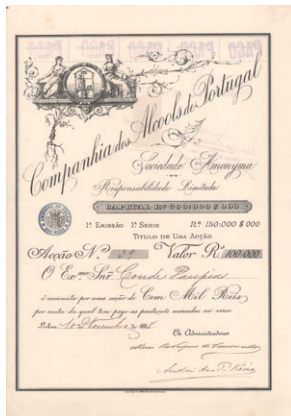 PAGO PAGO PAGO PAGO PAGO
Companhia dos Alcools de Portugal
Sociedade Anonyma
Responsabilidade Limitada
CAPITAL Rs 500:000 $ 000
1ª EMISSÃO 1ª SERIE Rs 150:000 $ 000
TITULO DE UMA ACÇÃO
Acção N.º 39 Valor Rs 100.000
O Ex.mo Snr Conde
é accionista por uma acção de Cem Mil Reis
por conta da qual tem pago as prestações marcadas no verso
Lisboa 10 de Novembro de
Os Administradores